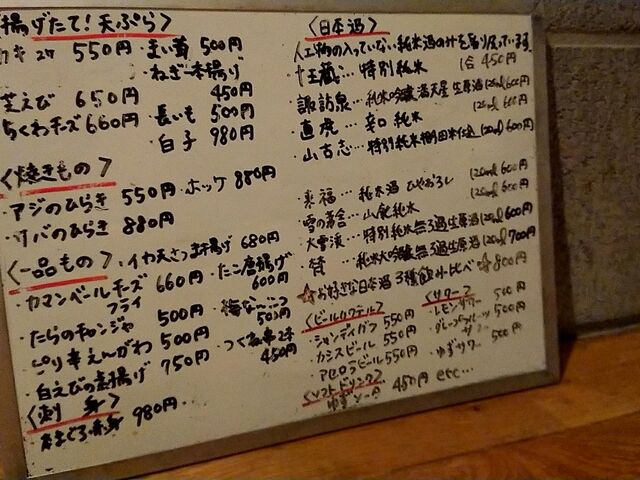 揚げたて!天ぷら〉
550円・まい茸 500円
・ねぎ一本揚げ
450円
芝えび 650円
ちくわチーズ 660円・長いも 500円
・白子 980円
〈焼きもの〉
・アジのひらき 550円・ホッケ 880円
・サバのひらき 880円
〈一品もの〉・イカ天さつま揚げ 680円
・カマンベールチーズ 660円・たこ唐揚げ
フライ 600円
・たらのチャンジャ 500円
500円
・ピリ辛えんがわ 500円・つくね串2本
450円
・白えびの素揚げ 750円
〈刺身〉
980円
〈日本酒〉
人工物の入っていない純米酒のみを取り扱っています
・十王蔵…特別純米 1合 450円
・諏訪泉…純米吟醸満天星生原酒 600円
・直虎…辛口純米 600円
・山古志…特別純米棚田米仕込 600円
・来福…純米酒ひやおろし 600円
・雪の茅舎…山廃純米 600円
・特別純米無ろ過生原酒 600円
・純米大吟醸無ろ過生原酒 700円
☆お好きな日本酒3種飲み比べ☆800円
〈ビールカクテル〉
・シャンディガフ 550円
・カシスビール 550円
・アセロラビール 550円
〈サワー〉
・レモンサワー 500円
・グレープフルーツ
サワー 500円
・ゆずサワー 500円
〈ソフトドリンク〉
450円 etc…